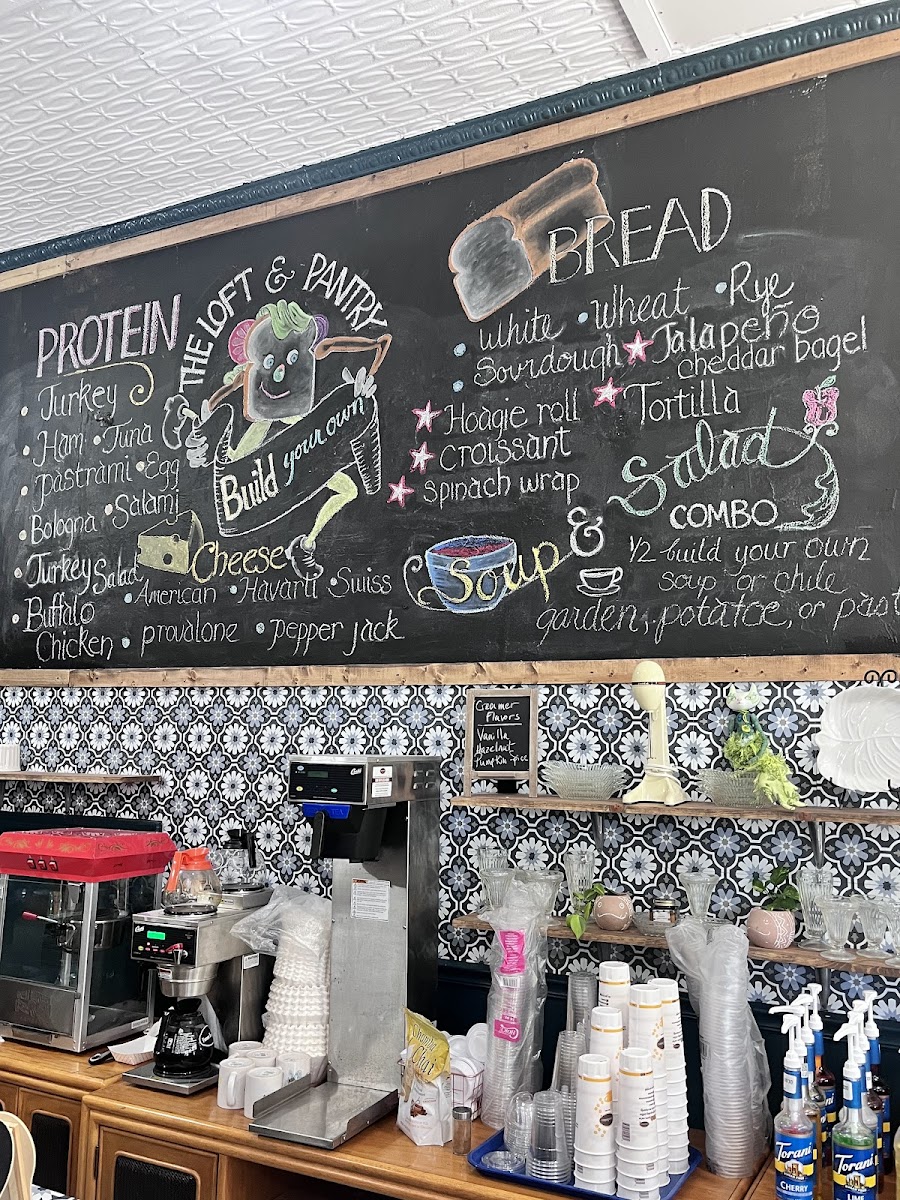 THE LOFT & PANTRY
Build your own
PROTEIN
• Turkey
• Ham • Tuna
• pastrami • Egg
• Bologna • Salami
• Turkey Salad
• Buffalo
Chicken
Cheese
• American • Havarti • Swiss
• provalone • pepper jack
BREAD
• White • Wheat • Rye
• Sourdough Jalapeño
cheddar bagel
Hoagie roll Tortilla
croissant
spinach wrap
Soup & Salad
COMBO
1/2 build your own
soup or chile
garden, potatoe, or past
Creamer
Flavors
Vanilla
Hazelnut
Pumpkin Spice
Curtis
Torani
CHERRY
Torani
LIME